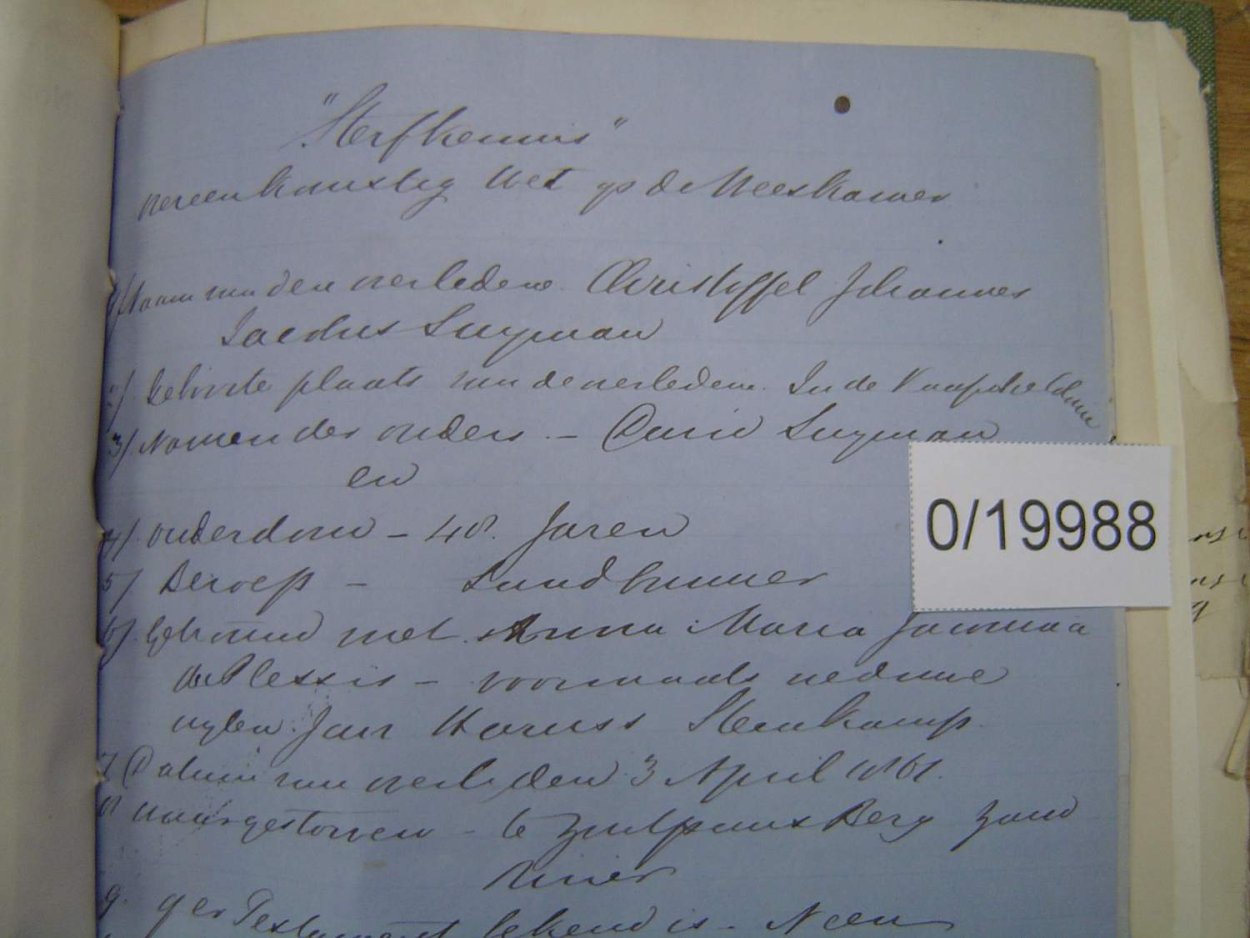 "Sterfkennis"
overeenkomstig Wet op de Weeskamer
1/ Naam van den overledene. Christoffel Johannes
Jacobus Snyman
2/ Geboorte plaats van de overledene. In de Kaapsche
3/ Namen der ouders. – David Snyman
en
4/ ouderdom – 48. Jaren
5/ Beroep – Landbouwer
6/. Getrouwd met Anna Maria Jacomina
du Plessis – voormaals weduwe
wylen Jan Steenkamp
7 Datum van overlyden 3 April 1861.
8 Waar gestorven – te Berg Zand
Rivier
9. Testament bekend is – Neen
0/19988